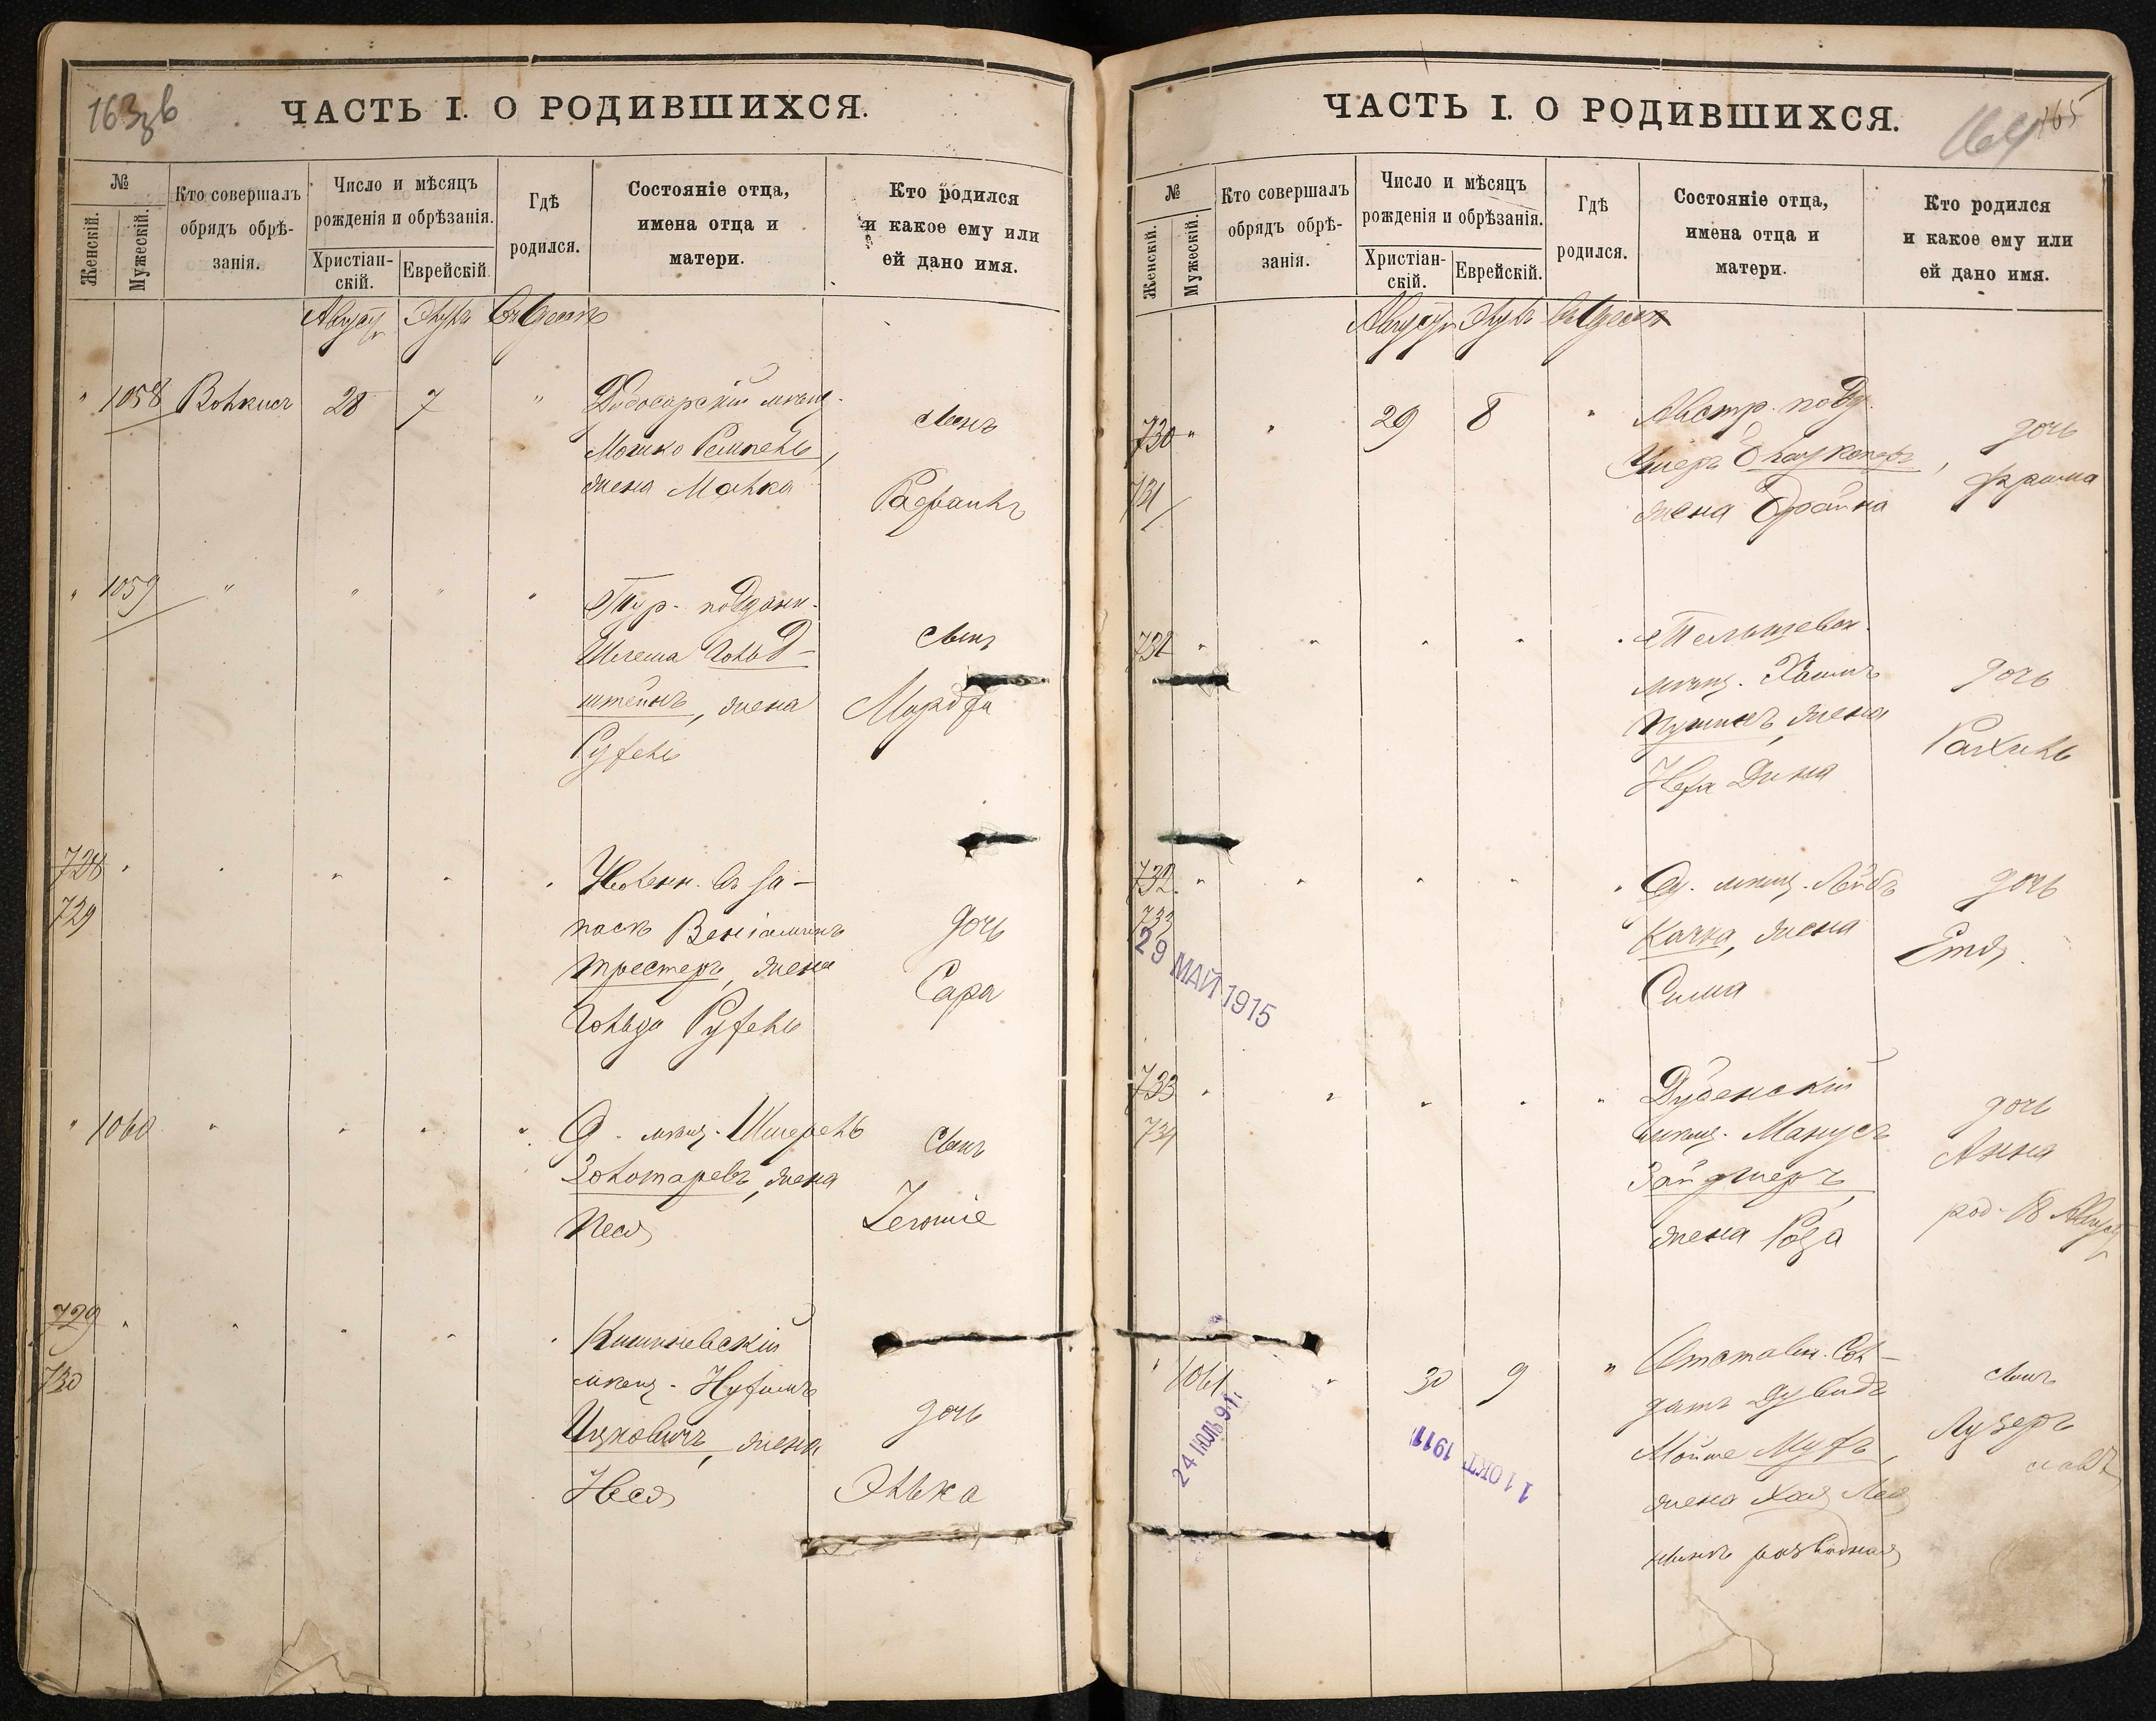 163зв
ЧАСТЬ I. О РОДИВШИХСЯ.
№
Женскій.
Мужескій.
Кто совершалъ
обрядъ обрѣ-
занія.
Число и мѣсяцъ
рожденія и обрѣзанія.
Христіан-
скій.
Еврейскій.
Гдѣ
родился.
Состояніе отца,
имена отца и
матери.
Кто родился
и какое ему или
ей дано имя.
Августъ
" 1058 28 7 "
Дубосарскій мѣщ.
Мошко
жена Малка
сынъ
Рафаилъ
" 1059 " " " "
Тур. поддан.
Шлема Гольд-
штейнъ, жена
Рухель
сынъ
728
729
Уволен. въ за-
пасъ Веніаминъ
Трестеръ, жена
Гольда Рухель
дочь
Сара
" 1060 " " " "
О. мѣщ. Шмерель
Золотаревъ, жена
Песя
сынъ
729
730
Кишиневскій
мѣщ. Нухимъ
Ицковичъ, жена
Неся
дочь
Элька
165
ЧАСТЬ I. О РОДИВШИХСЯ.
№
Женскій.
Мужескій.
Кто совершалъ
обрядъ обрѣ-
занія.
Число и мѣсяцъ
рожденія и обрѣзанія.
Христіан-
скій.
Еврейскій.
Гдѣ
родился.
Состояніе отца,
имена отца и
матери.
Кто родился
и какое ему или
ей дано имя.
Августъ
730 " " 29 8 "
731
Австр. подд.
жена Брайна
дочь
731 " " " " "
мѣщ. Хаимъ
жена
Дина
дочь
Рахиль
732 " " " " "
733
Од. мѣщ. Лейбъ
Качка, жена
Сима
дочь
Етя
29 МАЙ 1915
733 " " " " "
734
Дубенскій
мѣщ. Манусъ
Зайдлеръ,
жена Роза
дочь
Анна
род. 18 Август
" 1061 " 30 9 "
Отставн. Сол-
датъ Дувидъ
Мойше
жена Хая Лея
нынѣ разводная
сынъ
Лузеръ
24 ІЮЛЬ 91
11 ОКТ. 1911